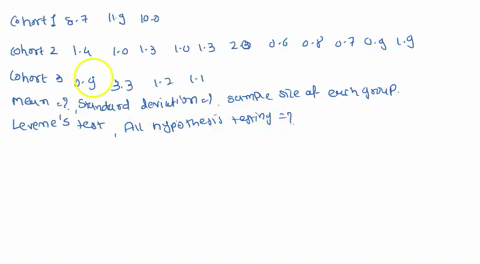 Cohort 1 8.7 11.9 10.0
Cohort 2 1.4 1.0 1.3 1.0 1.3 2.0 0.6 0.8 0.7 0.9 1.9
Cohort 3 0.9 3.3 1.2 1.1
Mean =?, Standard deviation =?, sample size of each group.
Levene's test, All hypothesis testing =?